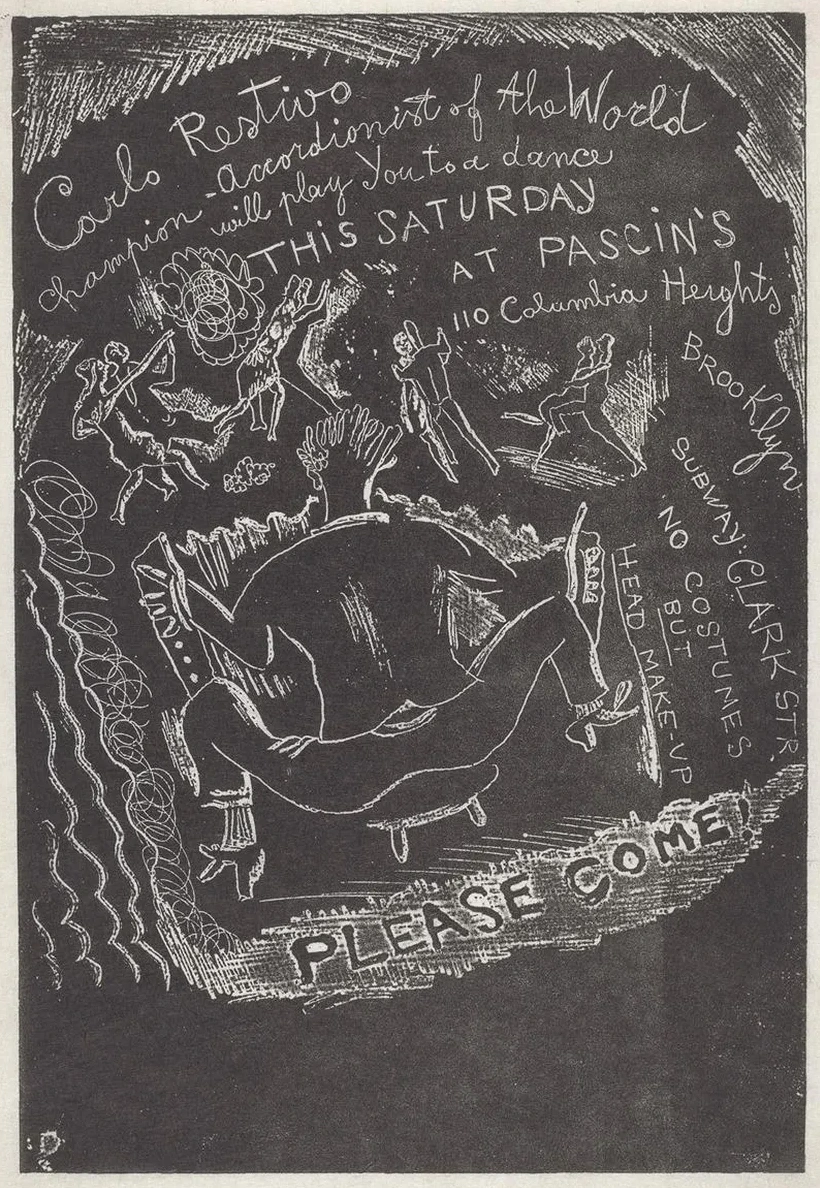 Carlo Restivo
champion-accordionist of the World
will play You to a dance
THIS SATURDAY
AT PASCiN'S
110 Columbia Heights
BROOKlyn
SUBWAY: CLARK STR.
NO COSTUMES
BUT
HEAD MAKE-UP
PLEASE COME!